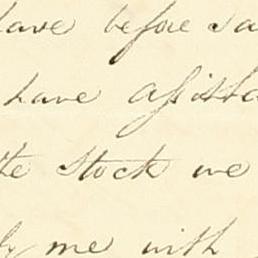 have before sa
have assista
the stock we
me with